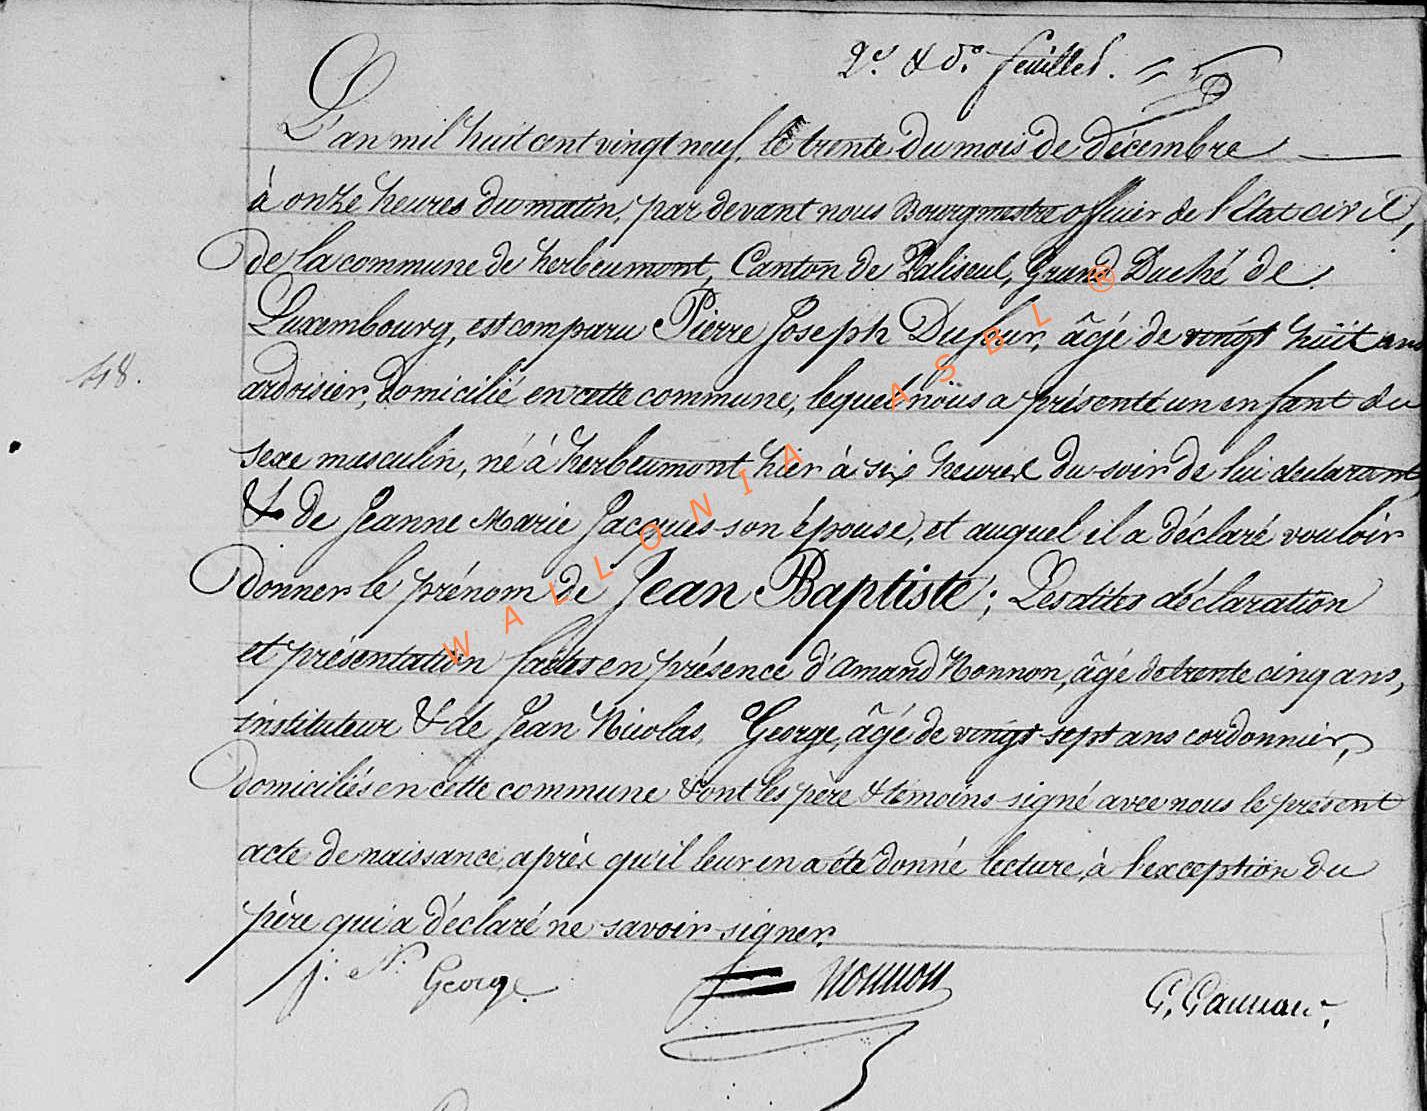 2e. & de. feuillet.
L'an mil huit cent vingt neuf, le trente du mois de décembre
à onze heures du matin, par devant nous Bourgmestre officier de l'Etat civil,
de la commune de herbeumont, Canton de Paliseul, Grand Duché de
Luxembourg, est comparu Pierre Joseph Dufour, âgé de vingt huit ans
48.
ardoisier, domicilié en cette commune, lequel nous a présenté un enfant du
sexe masculin, né à herbeumont hier à six heures du soir de lui déclarant
& de Jeanne Marie Jacques son épouse, et auquel il a déclaré vouloir
donner le prénom de Jean Baptiste; Lesdites déclaration
et présentation faites en présence d'Amand Nonnon, âgé de trente cinq ans,
instituteur & de Jean Nicolas George, âgé de vingt sept ans cordonnier,
domiciliés en cette commune & ont les père & témoins signé avec nous le présent
acte de naissance après qu'il leur en a été donné lecture, à l'exception du
père qui a déclaré ne savoir signer.
j. N. George Nonnon
WALLONIA ASBL ®